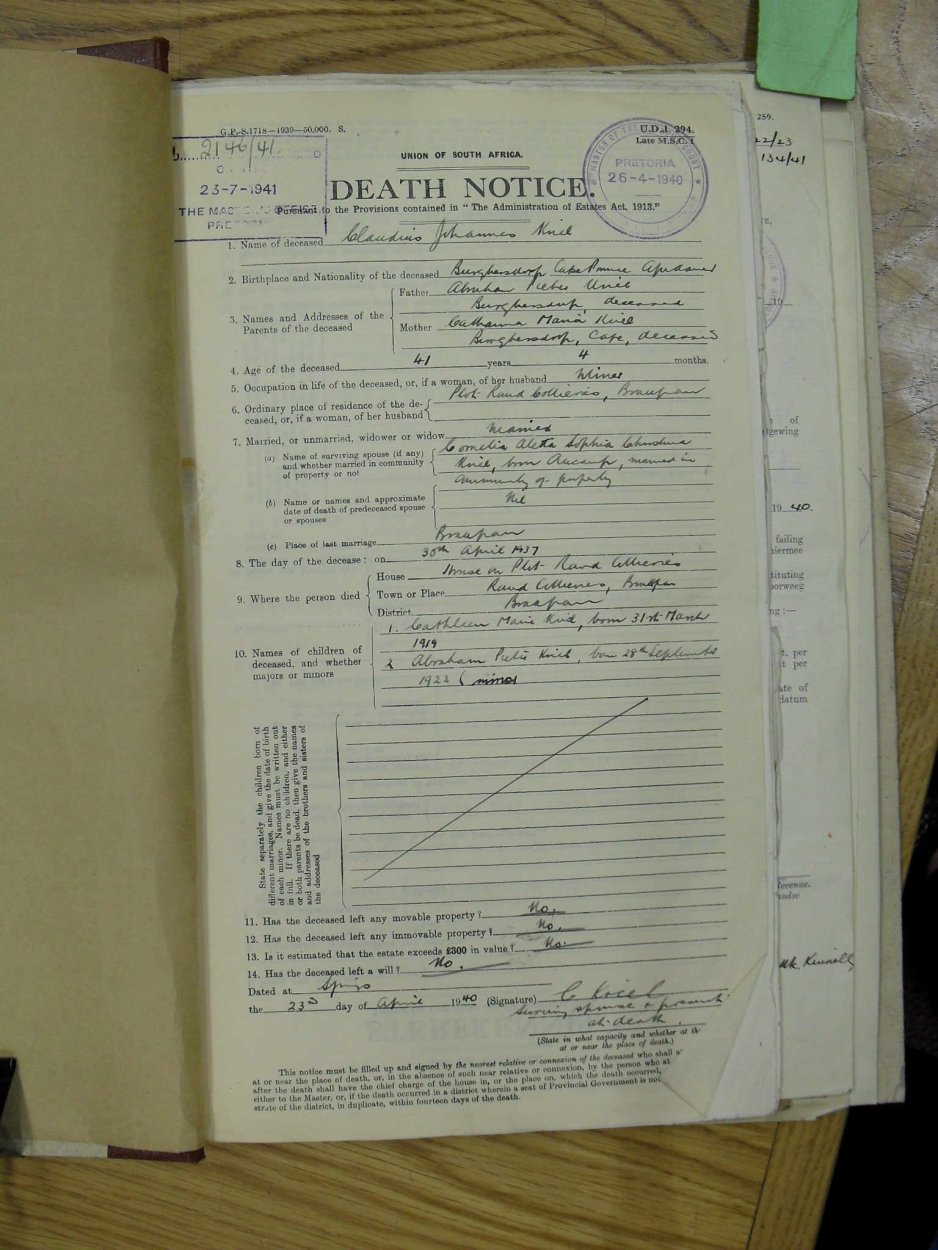 G.P.-S.1718—1939—50,000. S.
U.D.J. 294.
Late M.S.C. 1
2146/41.
23-7-1941
THE MASTER'S OFFICE
MASTER OF THE
PRETORIA
26-4-1940
UNION OF SOUTH AFRICA.
DEATH NOTICE.
Pursuant to the Provisions contained in "The Administration of Estates Act, 1913."
1. Name of deceased Claudius Johannes Kriel
2. Birthplace and Nationality of the deceased Burghersdorp, Cape Province
3. Names and Addresses of the Parents of the deceased
Father Abraham Pieter Kriel
Burghersdorp, deceased
Mother Catharina Maria Kriel
Burghersdorp, Cape, deceased
4. Age of the deceased 41 years 4 months.
5. Occupation in life of the deceased, or, if a woman, of her husband Miner
6. Ordinary place of residence of the deceased, or, if a woman, of her husband
Plot Rand Collieries, Brakpan
7. Married, or unmarried, widower or widow Married
(a) Name of surviving spouse (if any) and whether married in community of property or not
Cornelia Aletta Sophia Christina
Kriel, born Aucamp, married in
Community of property
(b) Name or names and approximate date of death of predeceased spouse or spouses
Nil
(c) Place of last marriage Brakpan
8. The day of the decease: on 30th April 1937
9. Where the person died
House House on Plot Rand Collieries
Town or Place Rand Collieries, Brakpan
District Brakpan
10. Names of children of deceased, and whether majors or minors
1. Cathleen Marie Kriel, born 31st March
1919
2 Abraham Pieter Kriel, born 28th September
1923 (minor
State separately the children born of
different marriages, and give the date of birth
of each minor. Names must be written out
in full. If there are no children, and either
or both parents be dead, then give the names
and addresses of the brothers and sisters of
the deceased
11. Has the deceased left any movable property? No.
12. Has the deceased left any immovable property? No.
13. Is it estimated that the estate exceeds £300 in value? No.
14. Has the deceased left a will? No.
Dated at Springs
the 23rd day of April 1940 (Signature) C Kriel
Surviving spouse & present
at death.
(State in what capacity and whether at th
at or near the place of death.)
This notice must be filled up and signed by the nearest relative or connexion of the deceased who shall a
at or near the place of death, or, in the absence of such near relative or connexion, by the person who at
after the death shall have the chief charge of the house in, or the place on, which the death occurred,
either to the Master, or, if the death occurred in a district wherein a seat of Provincial Government is not
strate of the district, in duplicate, within fourteen days of the death.
259.
22/23
134/41
19
of
gewing
19 40.
failing
iermee
tituting
oorweeg
ng:—
t. per
it per
ate of
datum
Revenue.